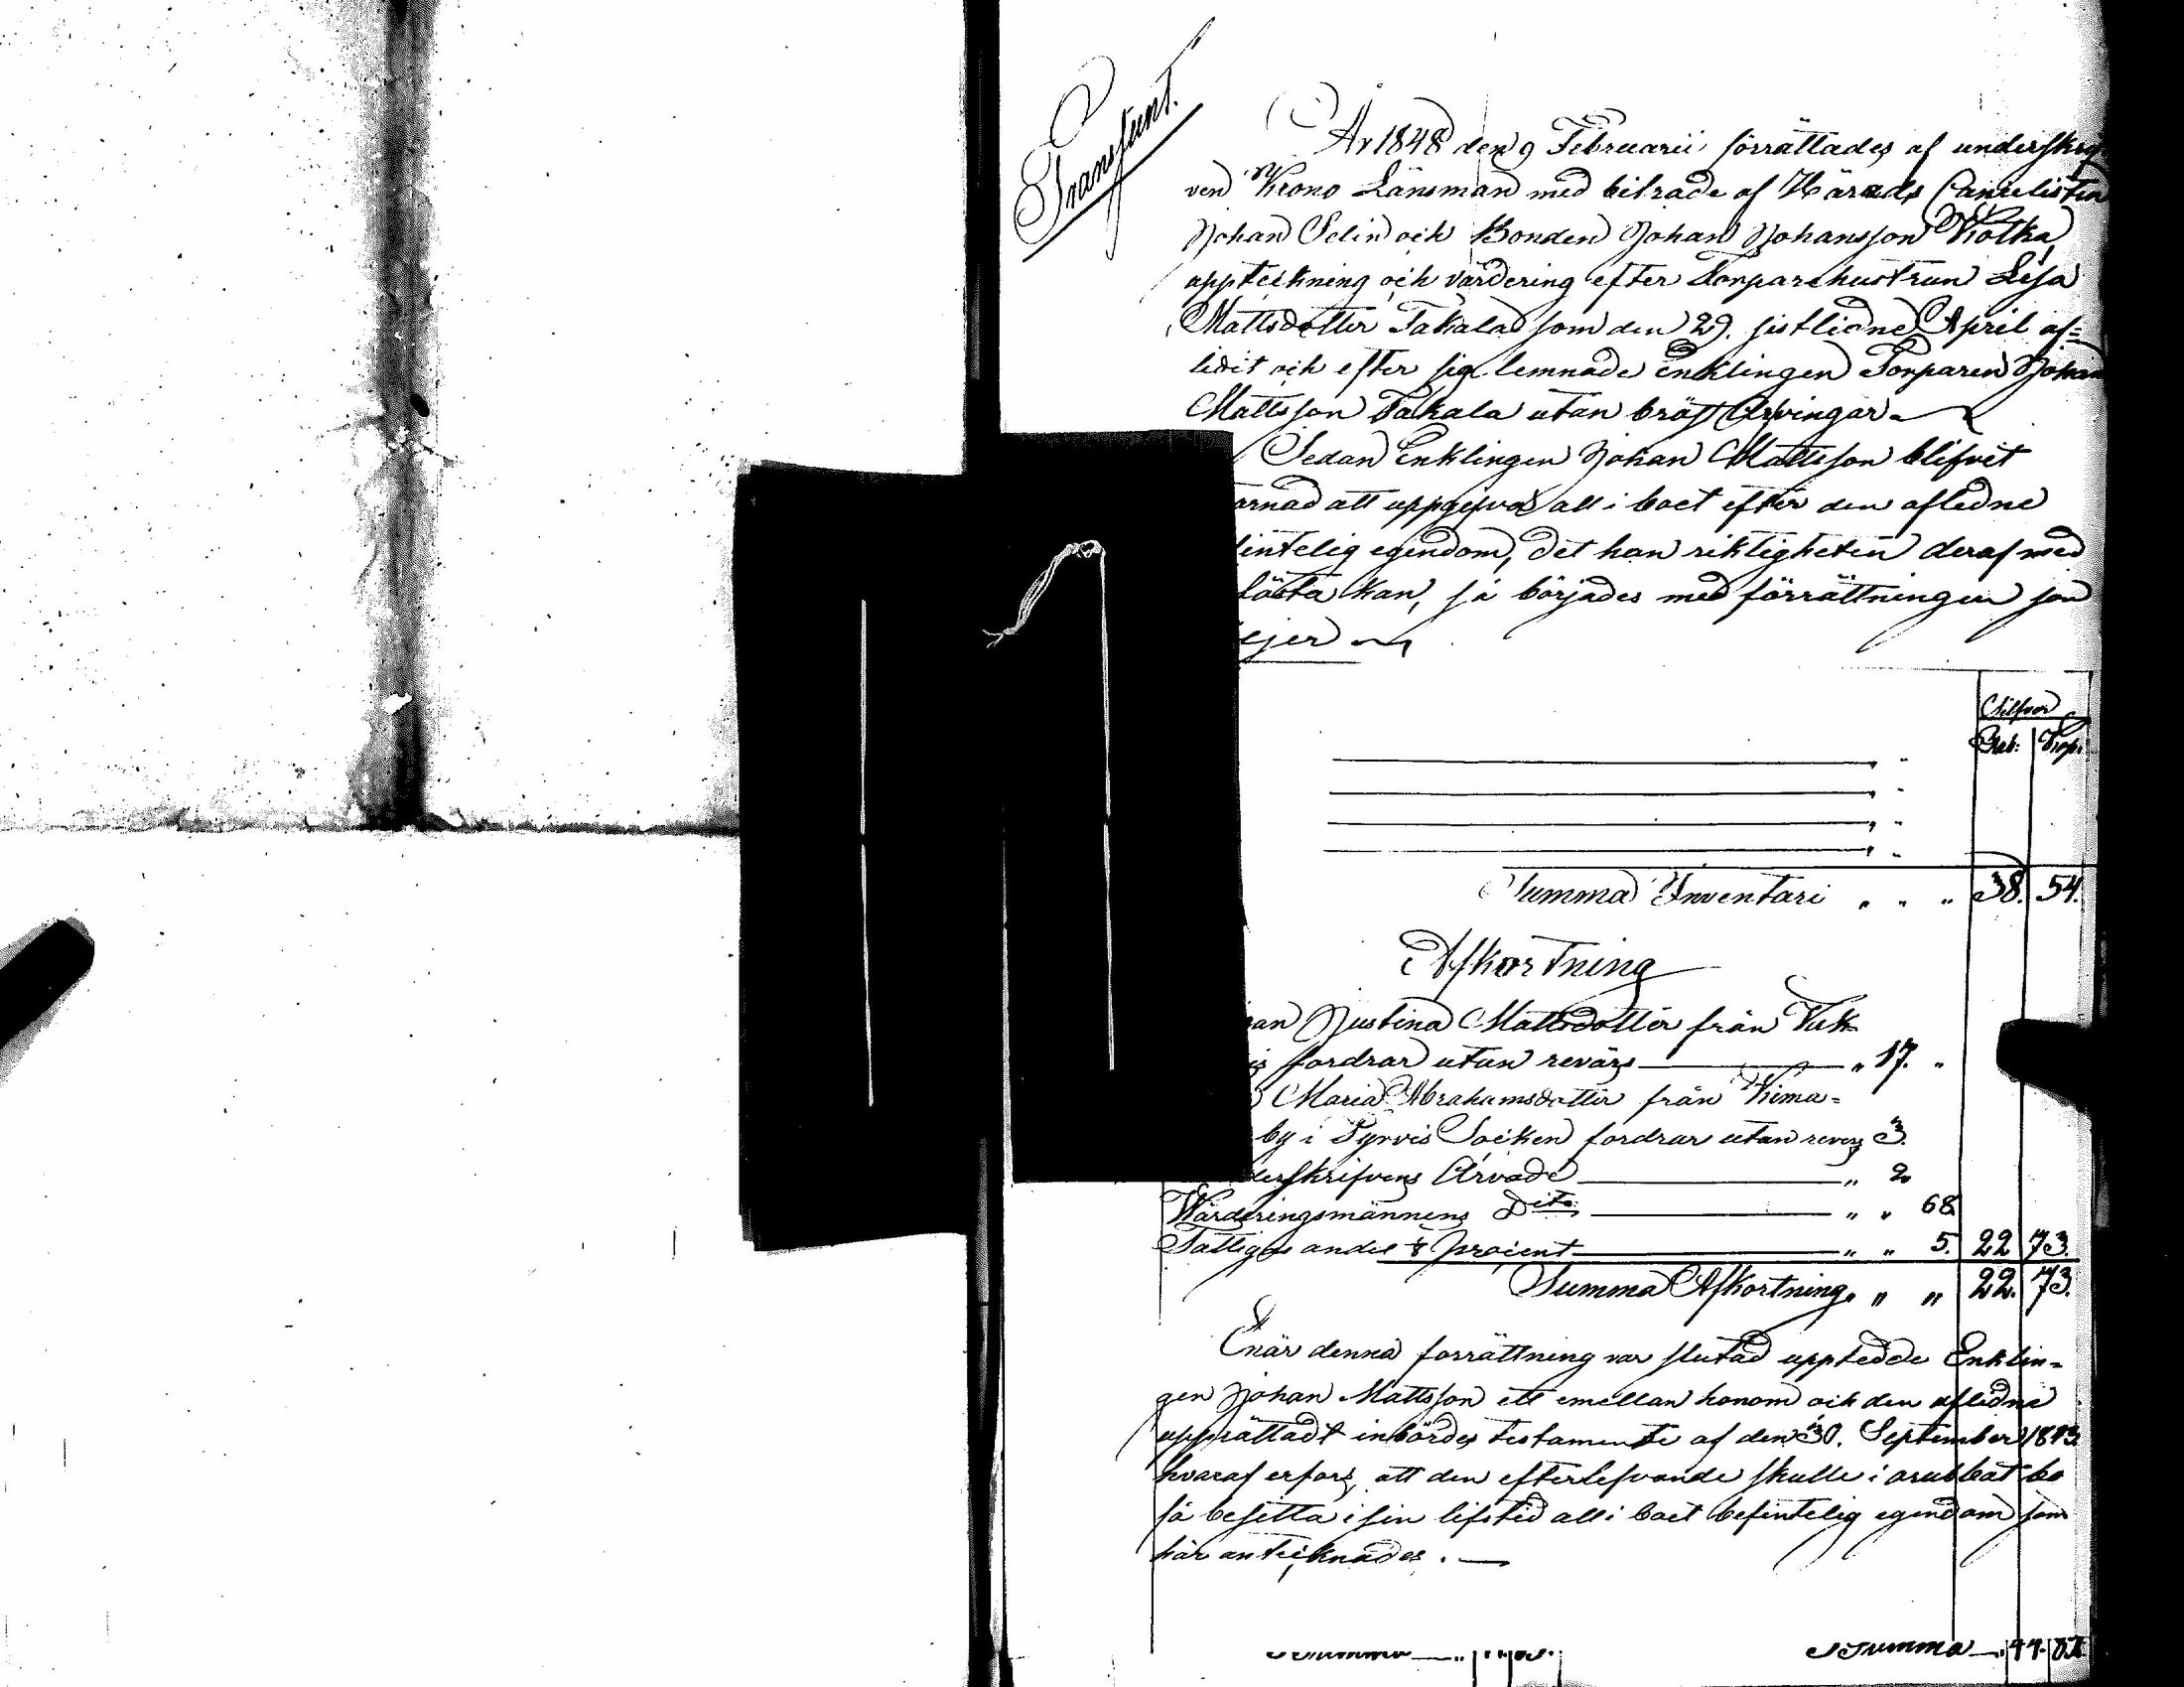 Transsunt.
År 1848 den 9 Februarii förrättades af underskrif
ven Krono Länsman med biträde af Härads Cancelisten
Johan Selin och Bonden Johan Johansson Kotka
uppteckning och värdering efter Torparehustrun Lisa
Mattsdotter Takala som den 29. sistlidne April af=
lidit och efter sig lemnade Enklingen Torparen Johan
Mattsson Takala utan bröst Arfvingar
Sedan Enklingen Johan Mattsson blifvit
arnad att uppgifva all i boet efter den aflidne
fintelig egendom, det han riktigheten deraf med
fästa kan, så börjades med förrättningen som
ejer
Silfver
Rub: Kop.
Summa Inventari " " " 38. 54.
Afkortning
an Justina Mattsdotter från
fordrar utan revärs " 17. "
Maria Abrahamsdotter från Kima=
by i Tyrvis Socken fordrar utan revers 3.
derskrifvens Arvode " 2
Wärderingsmännens Dito " " 68
Fattigas andel 1/8 procent " " 5. 22 73.
Summa Afkortning. " " 22. 73.
Enär denna förrättning var slutad uppte͏dde Enklin=
gen Johan Mattsson ett emellan honom och den aflidne
upprättadt inbördes testamente af den 30. September 1843
hvaraf erfors, att den efterlefvande skulle i orubbat bo
få besitta i sin lifstid all i boet befintelig egendom som
här antecknades.
Summa